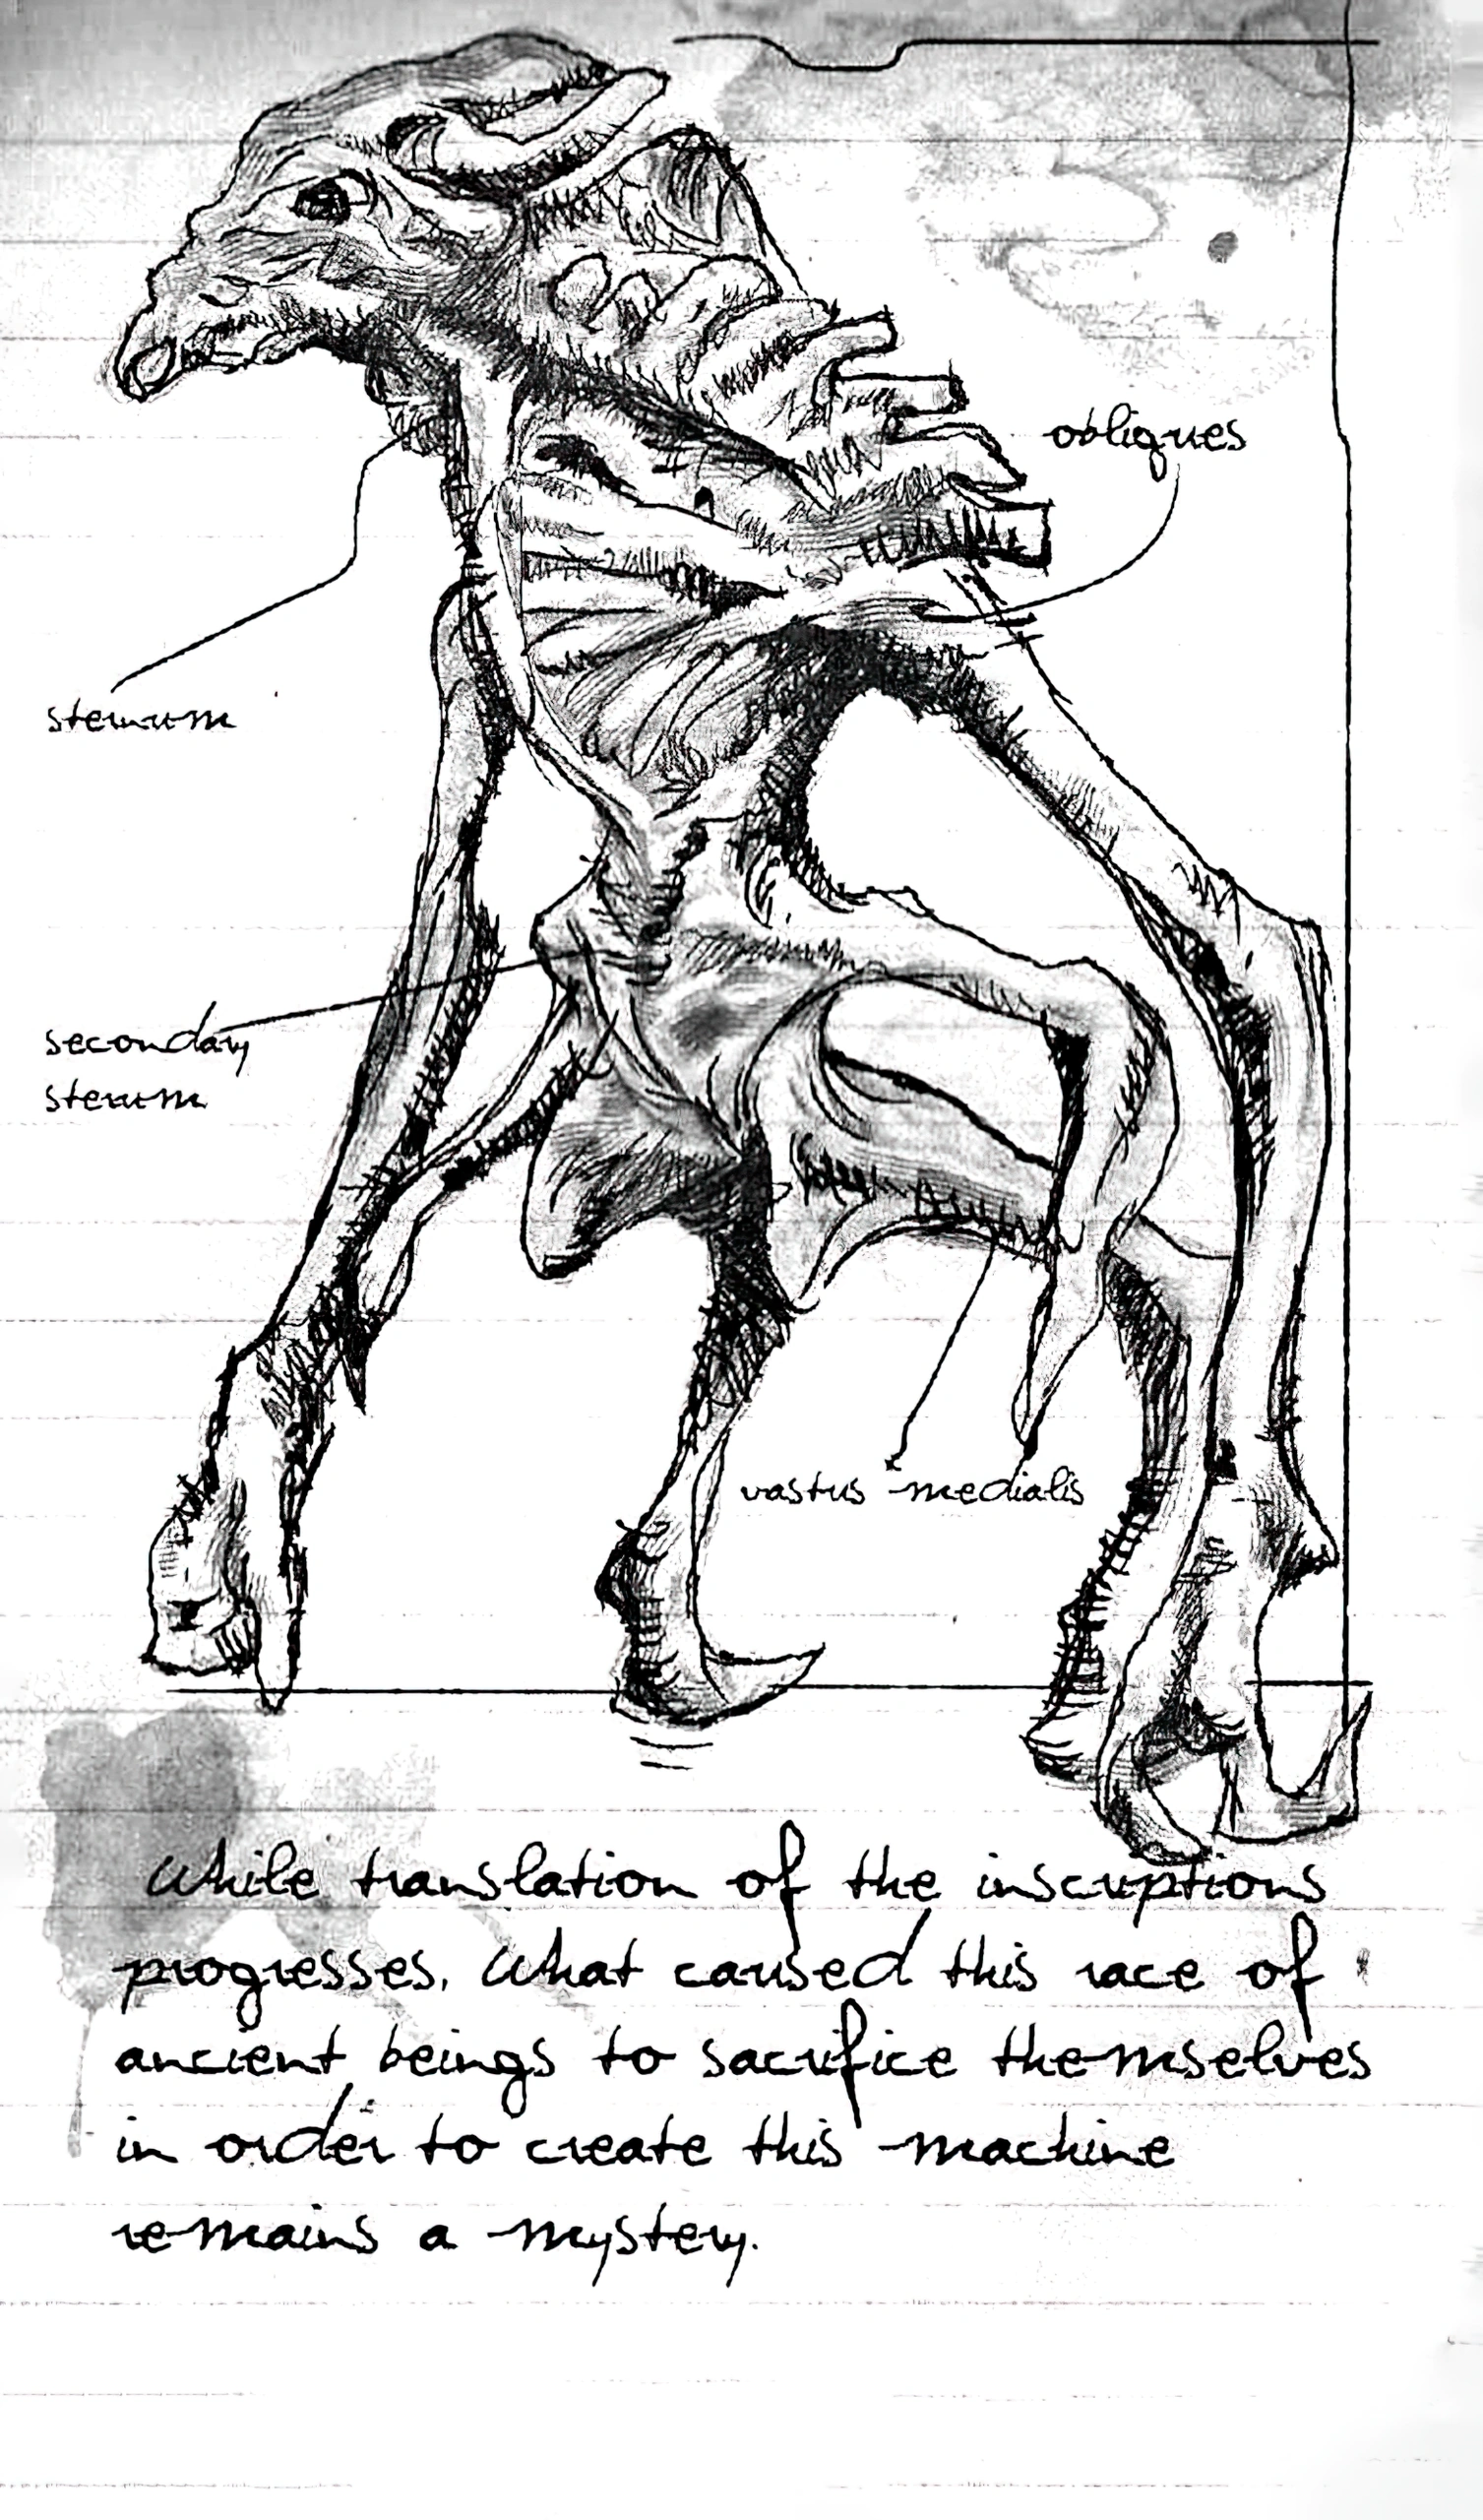 obliques
sternum
secondary
sternum
vastus medialis
While translation of the inscriptions
progresses. What caused this race of
ancient beings to sacrifice themselves
in order to create this machine
remains a mystery.